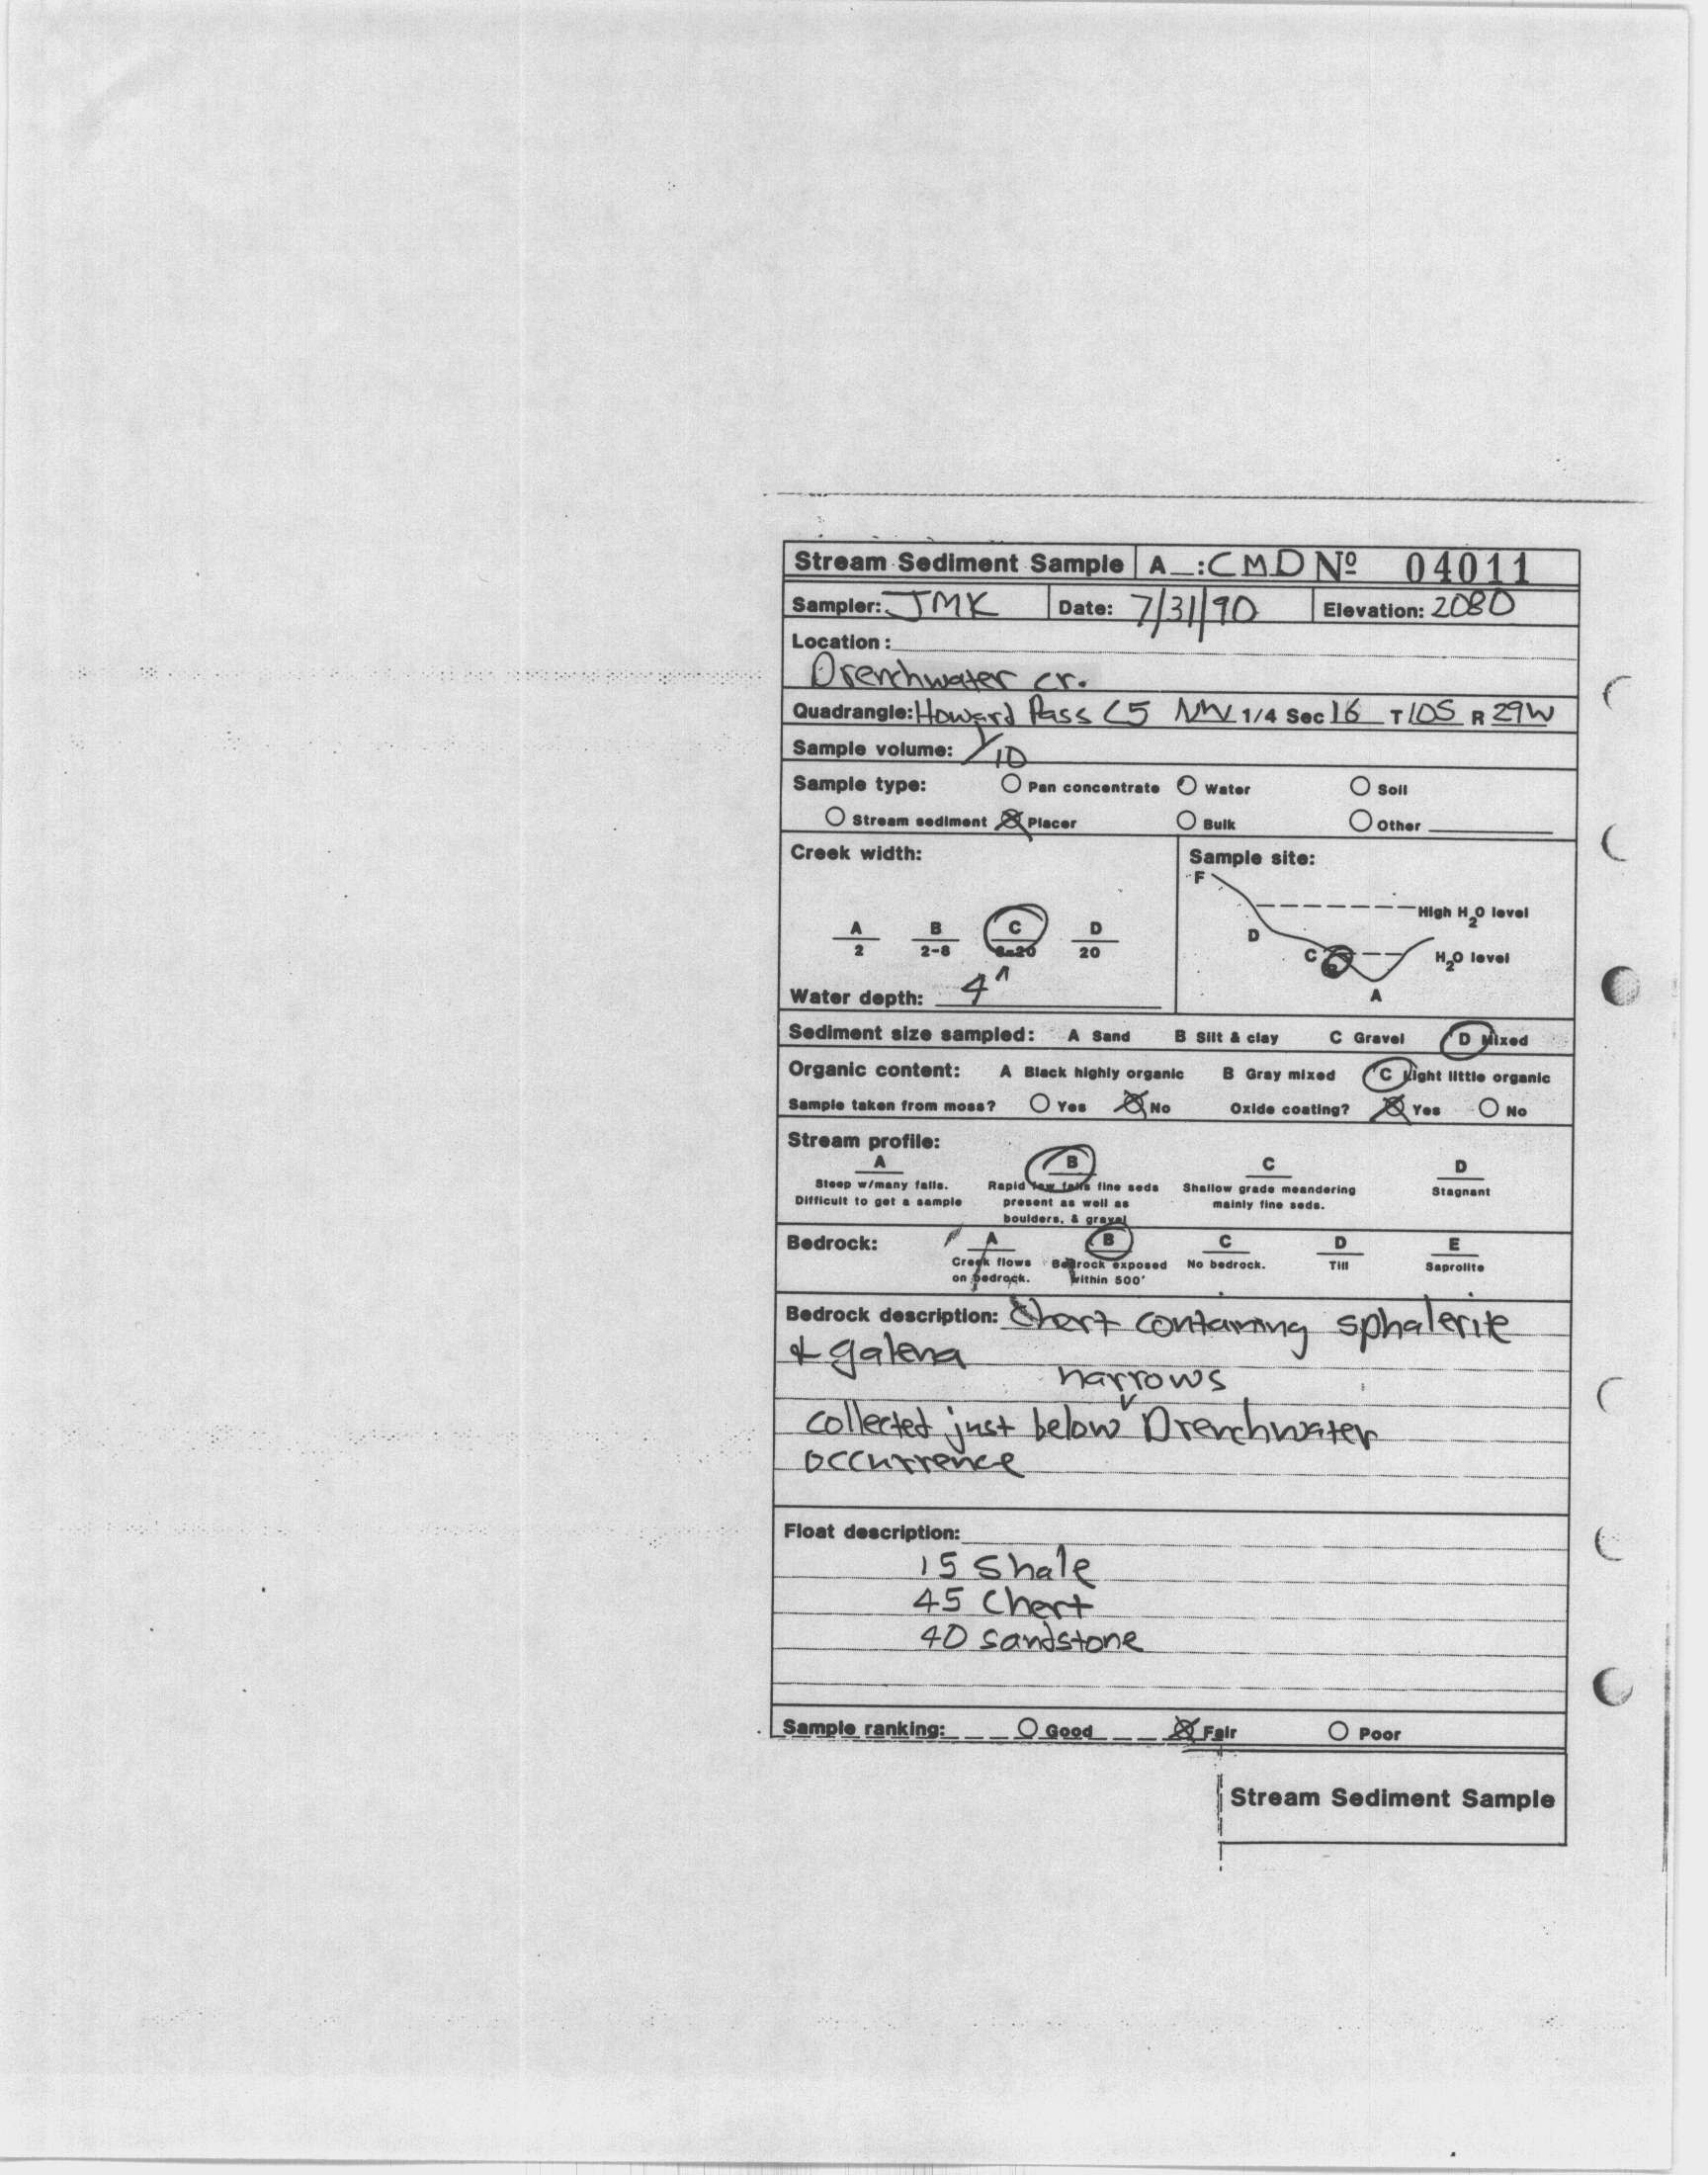 Stream Sediment Sample A _:CMD Nº 04011
Sampler: JMK Date: 7/31/90 Elevation: 2080
Location:
Drenchwater cr.
Quadrangle: Howard Pass C5 NW 1/4 Sec 16 T 10S R 29W
Sample volume: 1/10
Sample type: Pan concentrate Water Soil
Stream sediment Placer Bulk Other
Creek width: Sample site:
F
High H2O level
A B C D
2 2-8 8-20 20
D
C B H2O level
A
Water depth: 4"
Sediment size sampled: A Sand B Silt & clay C Gravel D Mixed
Organic content: A Black highly organic B Gray mixed C Light little organic
Sample taken from moss? Yes No Oxide coating? Yes No
Stream profile:
A B C D
Steep w/many falls. Rapid few falls fine seds Shallow grade meandering Stagnant
Difficult to get a sample present as well as mainly fine seds.
boulders, & gravel
Bedrock: A B C D E
Creek flows Bedrock exposed No bedrock. Till Saprolite
on bedrock. within 500'
Bedrock description: Chert containing sphalerite
& galena
narrows
collected just below Drenchwater
occurrence
Float description:
15 Shale
45 Chert
40 sandstone
Sample ranking: Good Fair Poor
Stream Sediment Sample